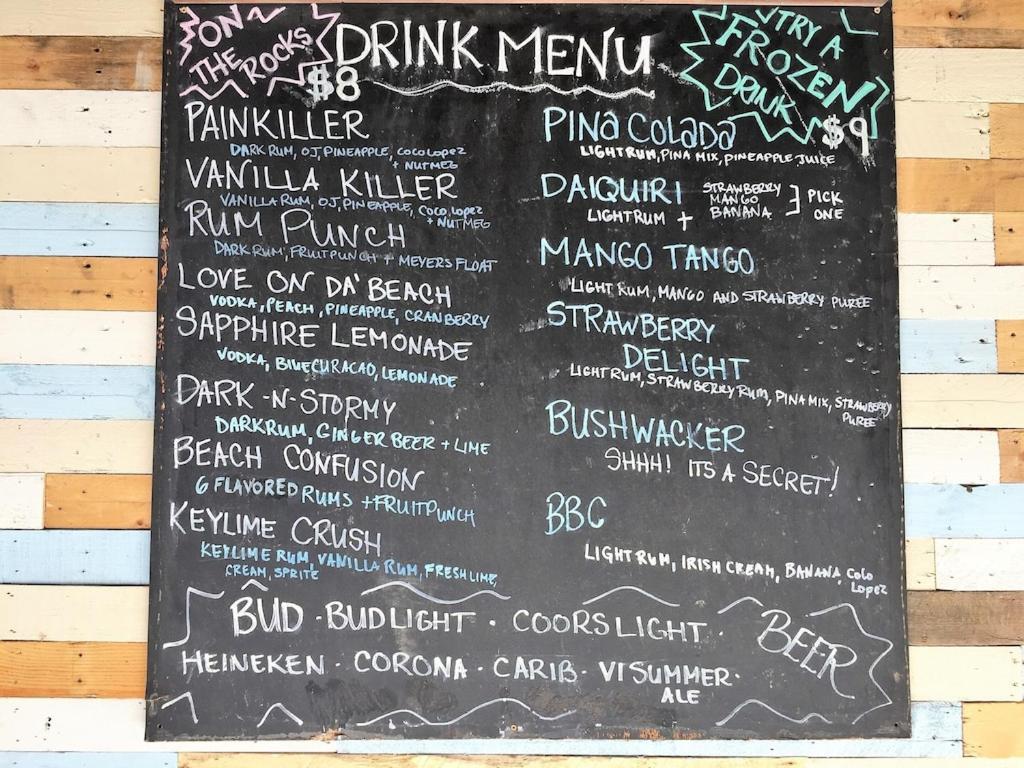 ON
THE ROCKS
$8
DRINK MENU
TRY A
FROZEN
DRINK
$9
PAINKILLER
DARK RUM, OJ, PINEAPPLE, COCO LOPEZ
+ NUTMEG
VANILLA KILLER
VANILLA RUM, OJ, PINEAPPLE, COCO LOPEZ
+ NUTMEG
RUM PUNCH
DARK RUM, FRUIT PUNCH + MEYERS FLOAT
LOVE ON DA' BEACH
VODKA, PEACH, PINEAPPLE, CRANBERRY
SAPPHIRE LEMONADE
VODKA, BLUE CURACAO, LEMONADE
DARK -N- STORMY
DARK RUM, GINGER BEER + LIME
BEACH CONFUSION
6 FLAVORED RUMS + FRUIT PUNCH
KEYLIME CRUSH
KEYLIME RUM, VANILLA RUM, FRESH LIME,
CREAM, SPRITE
PINA COLADA
LIGHT RUM, PINA MIX, PINEAPPLE JUICE
DAIQUIRI
LIGHT RUM +
STRAWBERRY
MANGO
BANANA
PICK
ONE
MANGO TANGO
LIGHT RUM, MANGO AND STRAWBERRY PUREE
STRAWBERRY
DELIGHT
LIGHT RUM, STRAWBERRY RUM, PINA MIX, STRAWBERRY
PUREE
BUSHWACKER
SHHH! ITS A SECRET!
BBC
LIGHT RUM, IRISH CREAM, BANANA, COLO
LOPEZ
BUD · BUD LIGHT · COORS LIGHT ·
HEINEKEN · CORONA · CARIB · VI SUMMER ·
ALE
BEER